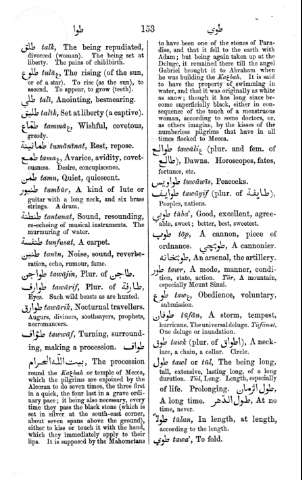 طوا
153
طوي
طلق talk, The being repudiated,
divorced (woman). The being set at
liberty. The pains of childbirth.
طلوع tulūʻ, The rising (of the sun,
or of a star). To rise (as the sun), to
ascend. To appear, to grow (teeth).
طلي talī, Anointing, besmearing.
طليق talīk, Set at liberty (a captive).
Wishful, covetous,
greedy.
Rest, repose.
طمع tamaʻ, Avarice, avidity, covet-
ousness. Desire, concupiscence.
Quiet, quiescent.
طنبور tumbūr, A kind of lute or
guitar with a long neck, and six brass
strings. A drum.
طنطنة tantanat, Sound, resounding,
re-echoing of musical instruments. The
murmuring of water.
A carpet.
طنين tanīn, Noise, sound, reverbe-
ration, echo, rumour, fame.
طواجن tawājin, Plur. of طاجن.
طوارف tawārif, Plur. of طارفة.
Eyes. Such wild beasts as are hunted.
طوارق tawārik, Nocturnal travellers.
Augurs, diviners, soothsayers, prophets,
necromancers.
طواف tawwāf, Turning, surround-
ing, making a procession. طواف
بيت الله الحرام, The procession
round the Kaʻbah or temple of Mecca,
which the pilgrims are enjoined by the
Alcoran to do seven times, the three first
in a quick, the four last in a grave ordi-
nary pace; it being also necessary, every
time they pass the black stone (which is
set in silver at the south-east corner,
about seven spans above the ground),
either to kiss or touch it with the hand,
which they immediately apply to their
lips. It is supposed by the Mahometans
to have been one of the stones of Para-
dise, and that it fell to the earth with
Adam; but being again taken up at the
Deluge, it remained there till the angel
Gabriel brought it to Abraham when
he was building the Kaʻbah. It is said
to have the property of swimming in
water, and that it was originally as white
as snow, though it has long since be-
come superficially black, either in con-
sequence of the touch of a menstruous
woman, according to some doctors, or,
as others imagine, by the kisses of the
numberless pilgrims that have in all
times flocked to Mecca.
طوالع tawāliʻ, (plur. and fem. of
طالع), Dawns. Horoscopes, fates,
fortune, etc.
طواويس tawāwīs, Peacocks.
طوايف tawāyif (plur. of طايفة),
Peoples, nations.
طوبي tūba', Good, excellent, agree-
able, sweet; better, best, sweetest.
طوپ tōp, A cannon, piece of
ordnance. طوپچي, A cannonier.
طوپخانه, An arsenal, the artillery.
طور tawr, A mode, manner, condi-
tion, state, action. Tūr, A mountain,
especially Mount Sinai.
طوع tawʻ, Obedience, voluntary,
submission.
طوفان tūfān, A storm, tempest,
hurricane. The universal deluge.
One deluge or inundation.
طوق tawk (plur. of اطواق), A neck-
lace, a chain, a collar. Circle.
طول tawl or tūl, The being long,
tall, extensive, lasting long, of a long
duration. Tūl, Long. Length, especially
of life. Prolonging. طول الزمان,
A long time. طول الدهر, At no
time, never.
طولا tūlan, In length, at length,
according to the length.
طوي tawa', To fold.